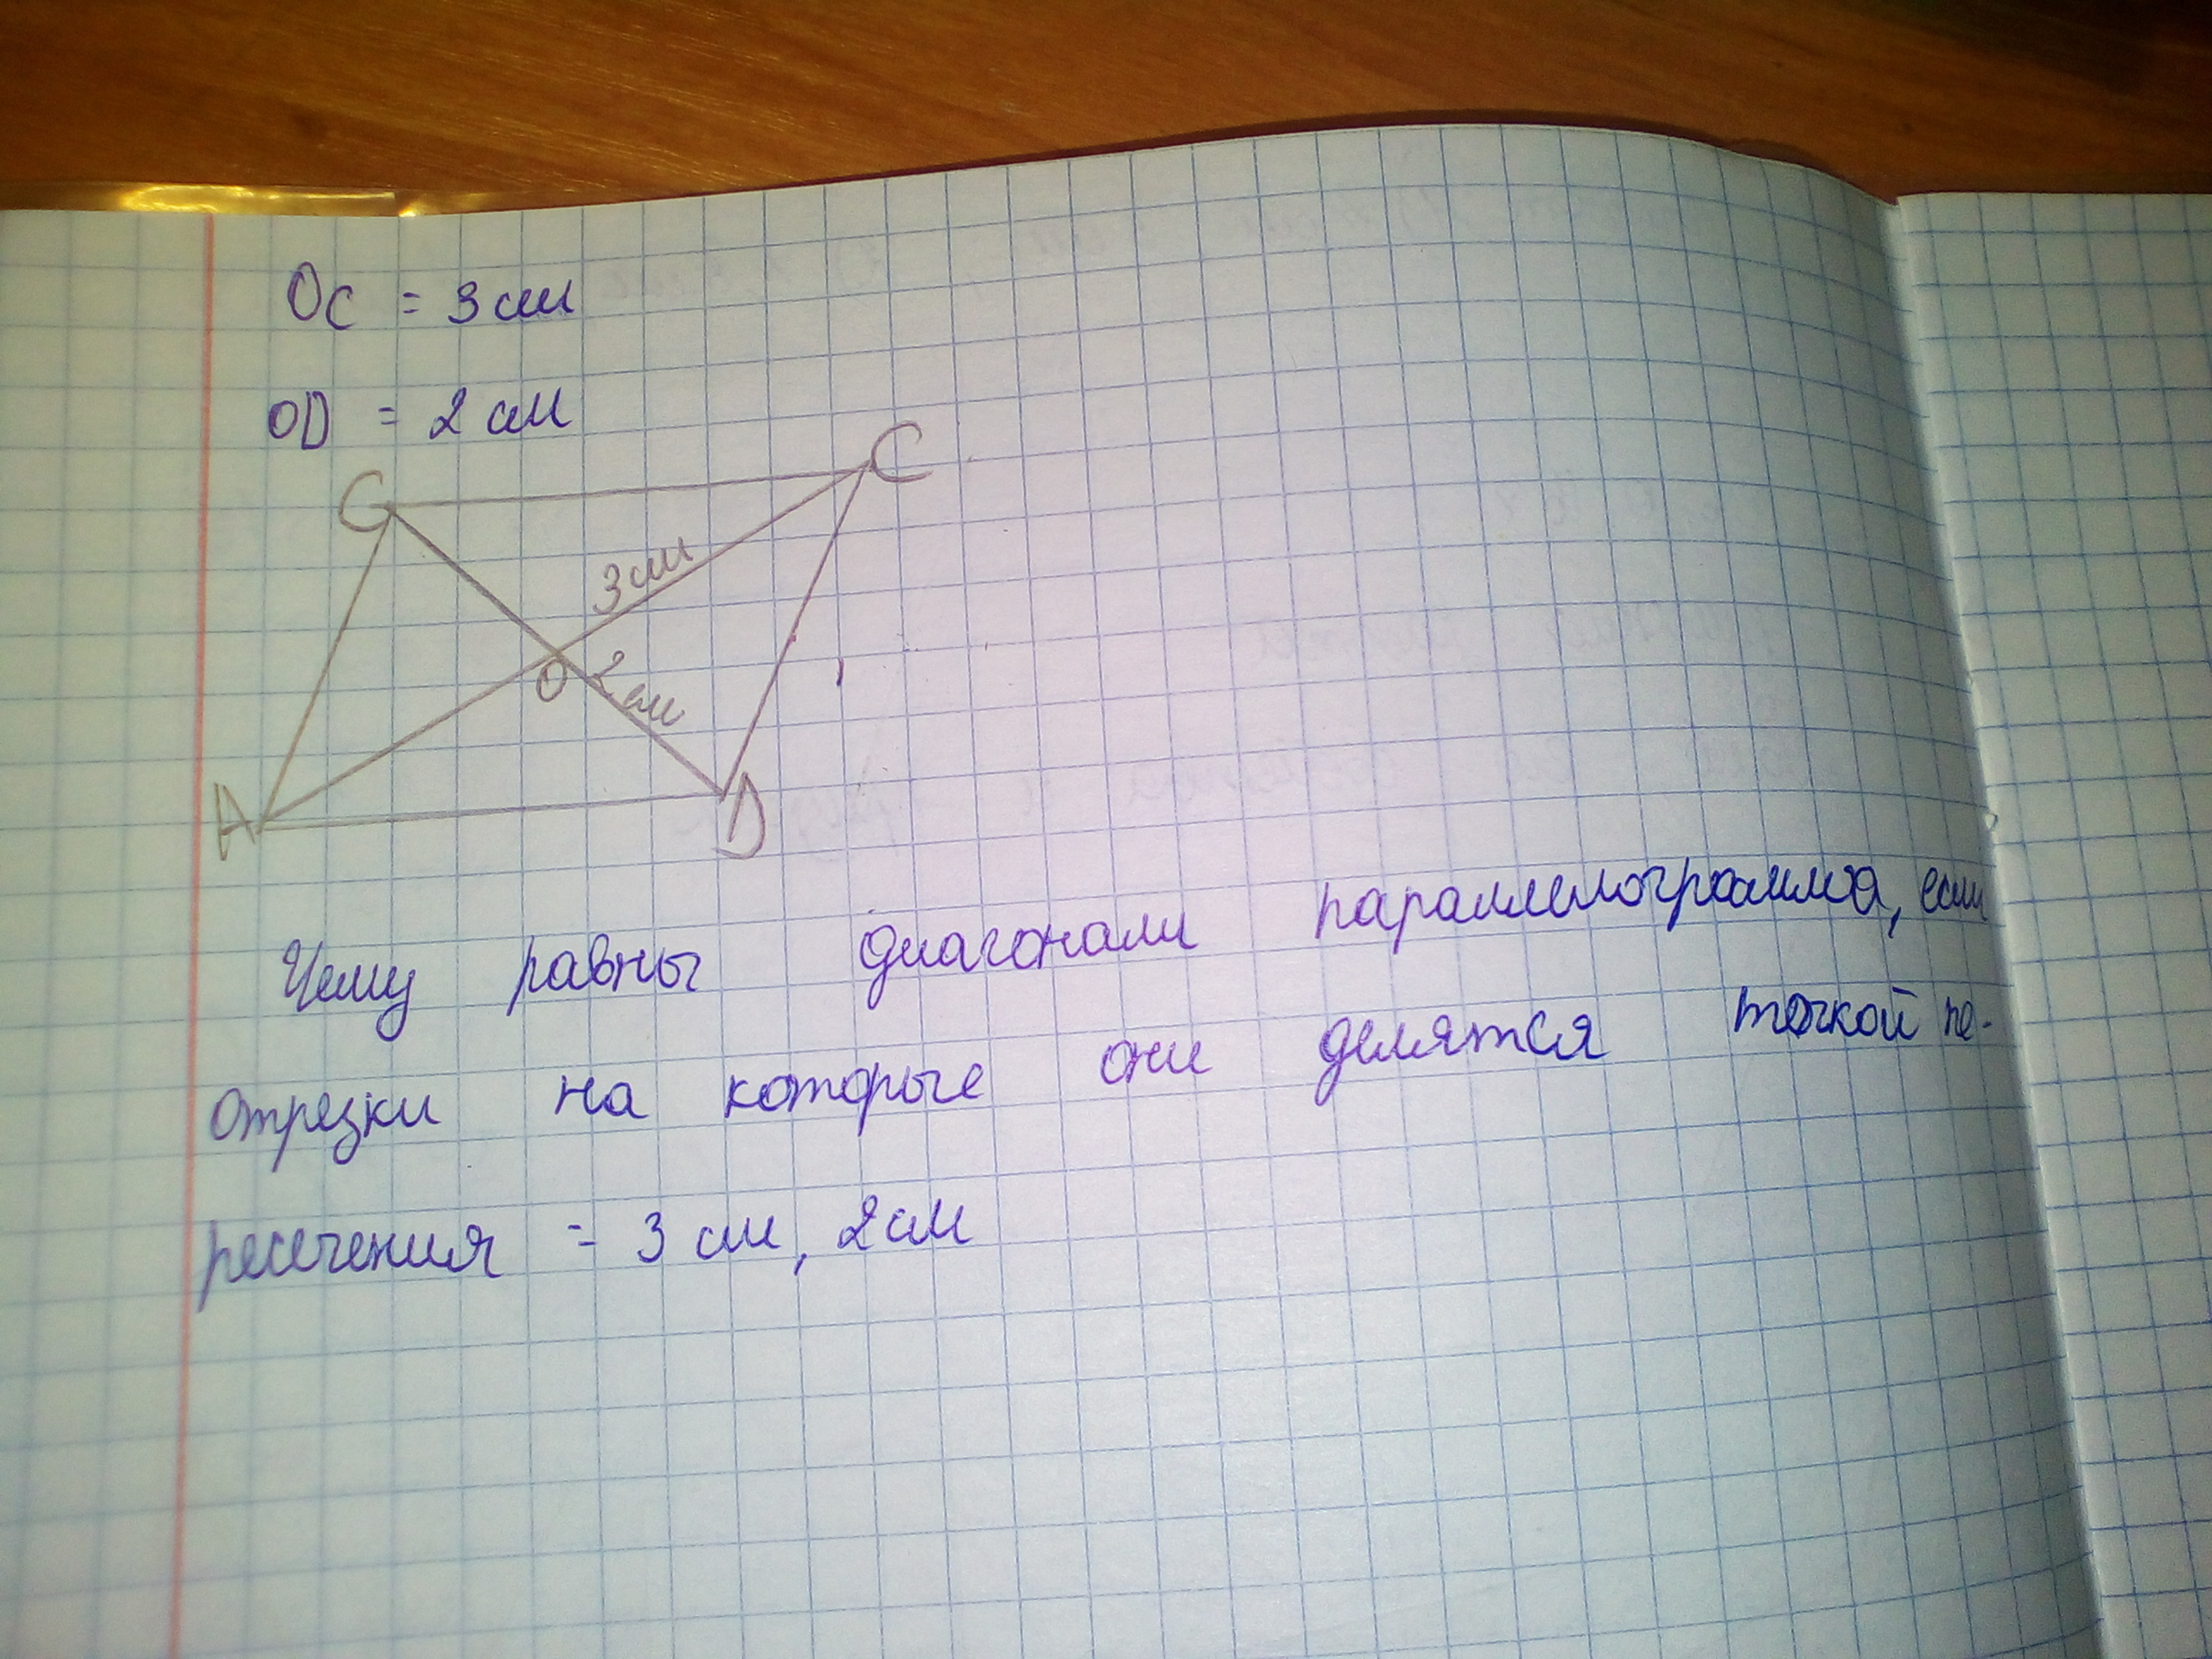 Oc = 3 см
OD = 2 см
C C
3 см
O 2 см
A D
Чему равны диагонали параллелограмма, если
отрезки на которые они делятся точкой пе-
ресечения = 3 см, 2 см